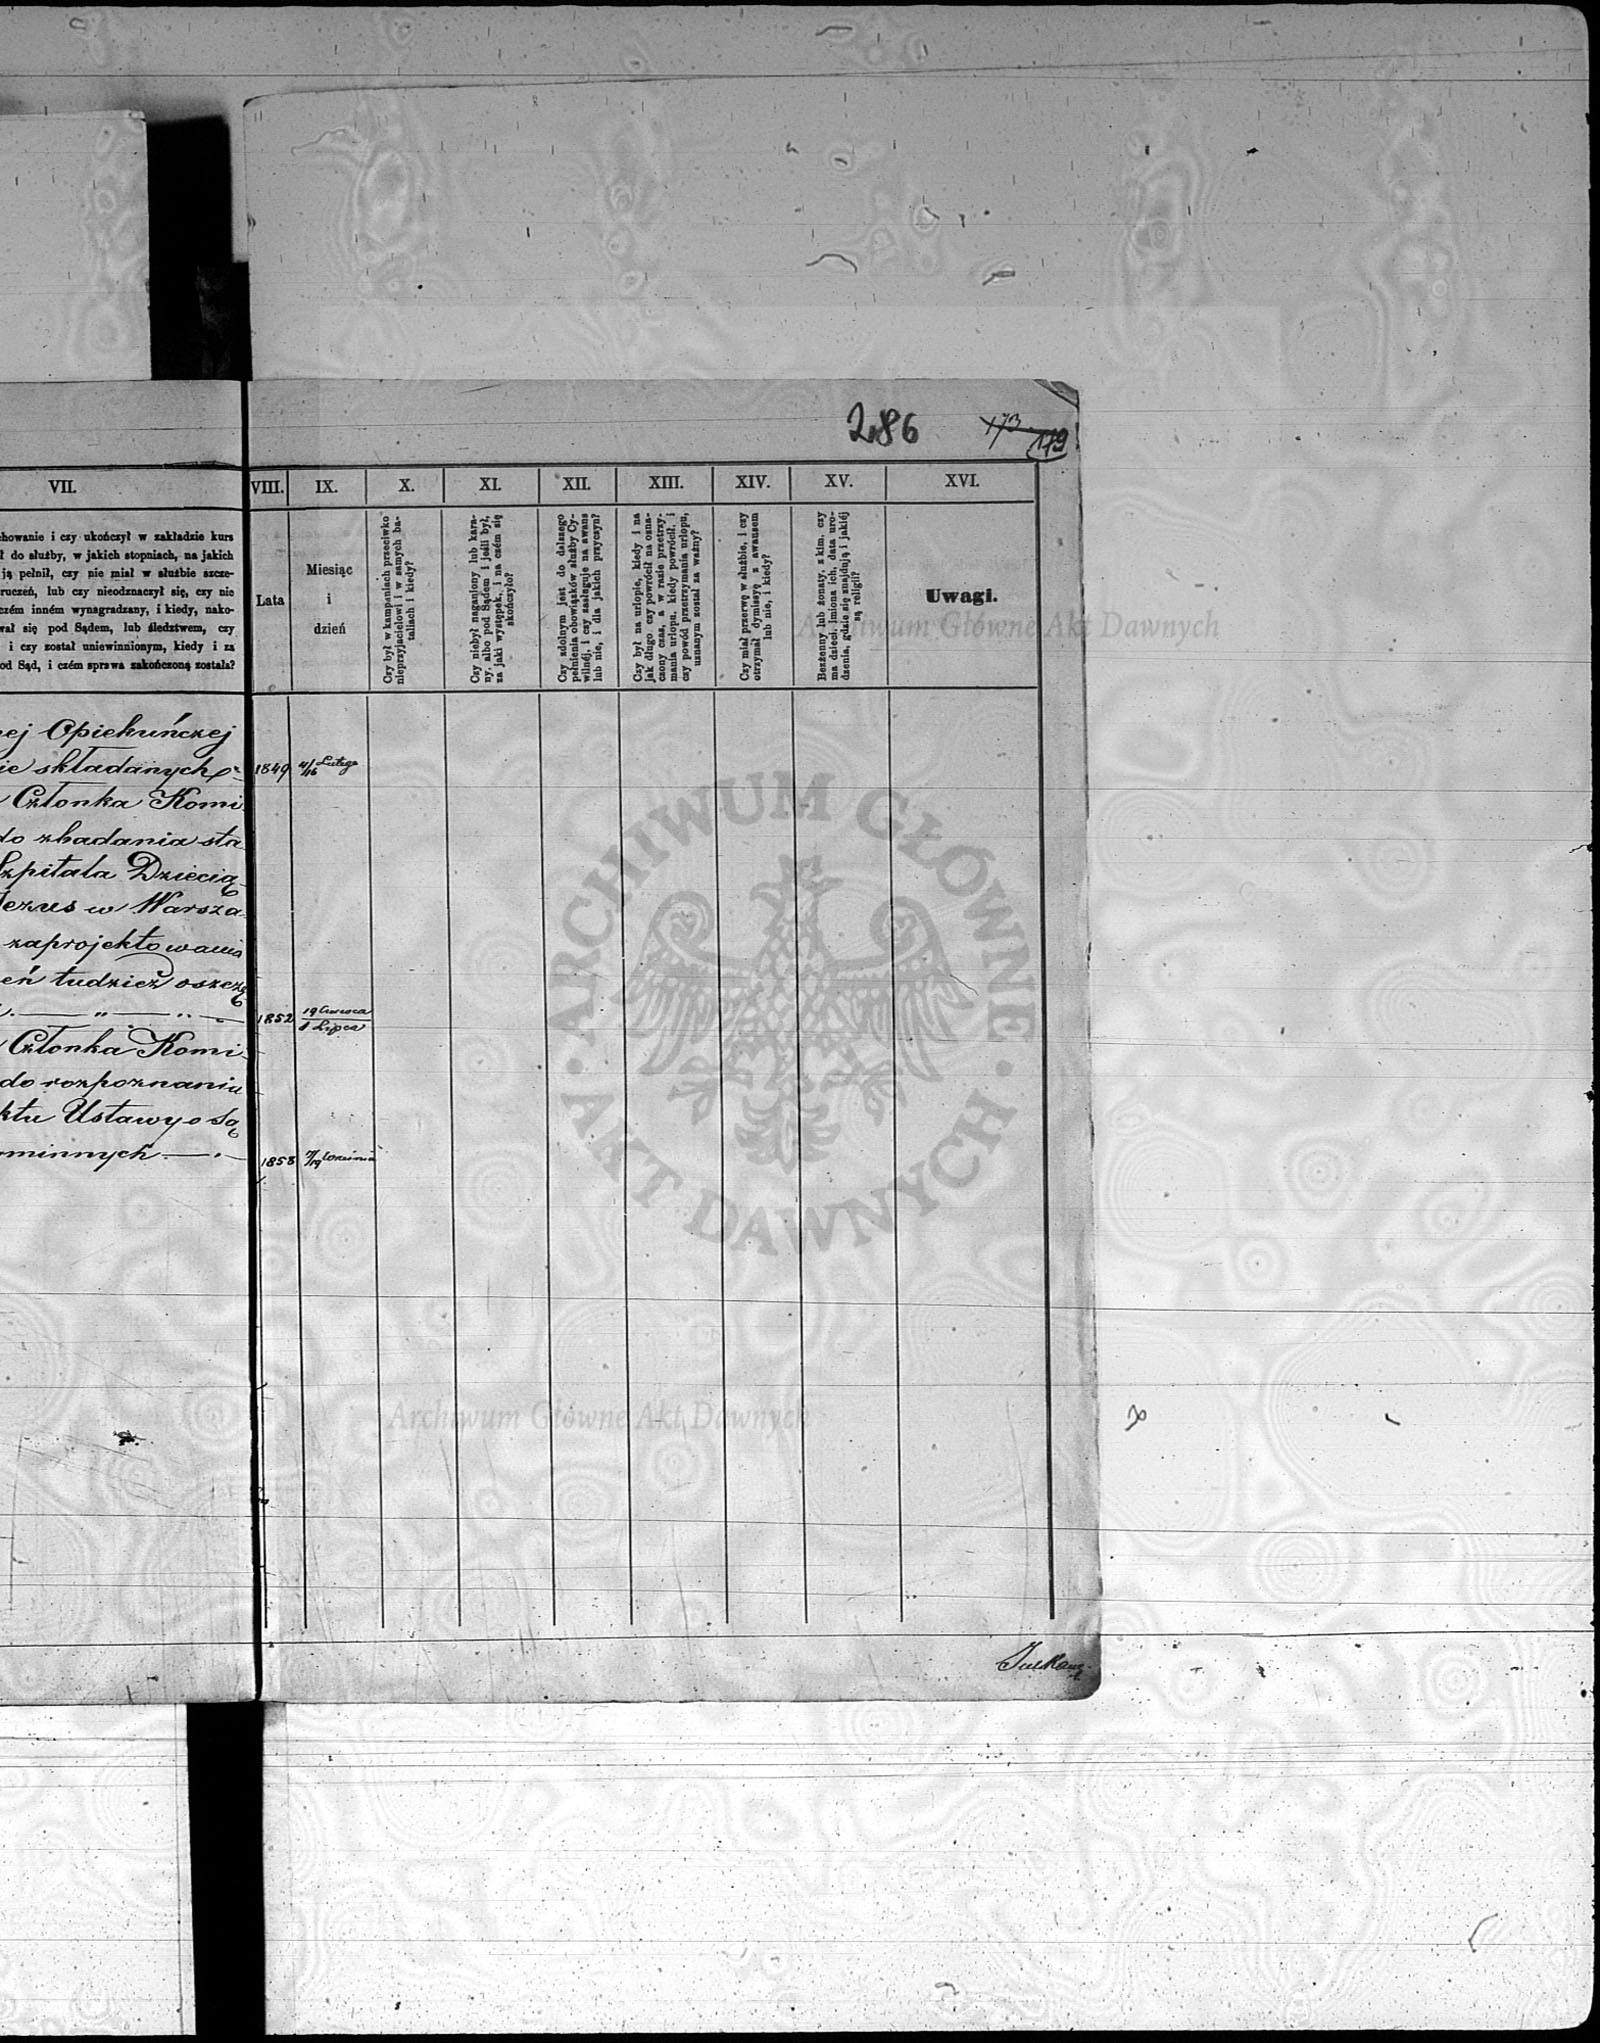 286
173
179
VII.
VIII.
IX.
X.
XI.
XII.
XIII.
XIV.
XV.
XVI.
chowanie i czy ukończył w zakładzie kurs
ł do służby, w jakich stopniach, na jakich
ją pełnił, czy nie miał w służbie szcze-
ruczeń, lub czy nieodznaczył się, czy nie
czém inném wynagradzany, i kiedy, nako-
wał się pod Sądem, lub śledztwem, czy
i czy został uniewinnionym, kiedy i za
od Sąd, i czém sprawa zakończoną została?
Lata
Miesiąc
i
dzień
Czy był w kampaniach przeciwko
nieprzyjacielowi i w samych ba-
taliach i kiedy?
Czy niebył naganiony lub kara-
ny, albo pod Sądem i jeśli był,
za jaki występek, i na czém się
skończyło?
Czy zdolnym jest do dalszego
pełnienia obowiązków służby Cy-
wilnéj, i czy zasługuje na awans
lub nie, i dla jakich przyczyn?
Czy był na urlopie, kiedy i na
jak długo czy powrócił na ozna-
czony czas, a w razie przetrzy-
mania urlopu, kiedy powrócił, i
czy powód przetrzymania urlopu,
uznanym został za ważny?
Czy miał przerwę w służbie, i czy
otrzymał dymissyę z awansem
lub nie, i kiedy?
Bezżenny lub żonaty, z kim, czy
ma dzieci, imiona ich, data uro-
dzenia, gdzie się znajdują i jakiéj
są religii?
Uwagi.
Archiwum Główne Akt Dawnych
ej Opiekuńczej
ie składanych
1849 4/16 Lutego
Członka Komi
do zbadania sta
Szpitala Dziecią
Jezus w Warsza
zaprojektowania
eń tudzież oszczę
1852 19 Czerwca
1 Lipca
Członka Komi
do rozpoznania
ktu Ustawy o Są
minnych
1858 7/19 Września
ARCHIWUM GŁÓWNE • AKT DAWNYCH •
Archiwum Główne Akt Dawnych